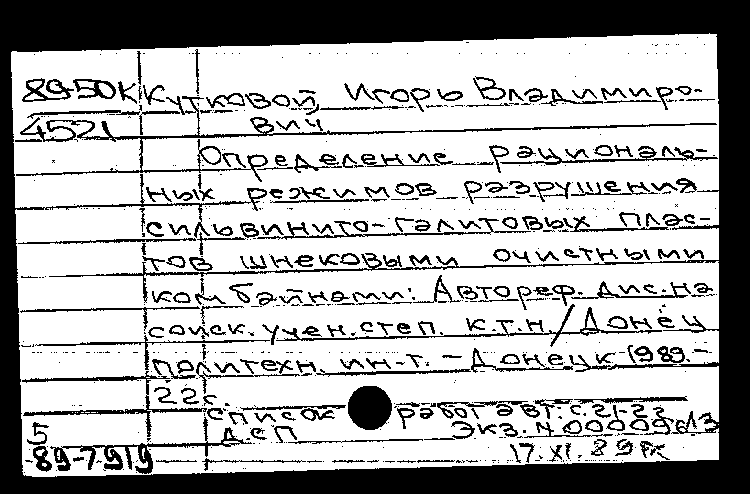 89-50К Кутковой, Игорь Владимиро-
4521 вич.
Определение рациональ-
ных режимов разрушения
сильвинито-галитовых плас-
тов шнековыми очистными
комбайнами: Автореф. дис. на
соиск. учен. степ. к.т.н./Донец
политехн. ин-т. – Донецк 1989.–
22с.
Список работ авт: с.21-22
5 ДСП Экз. N 00009
89-7919 17.XI.89